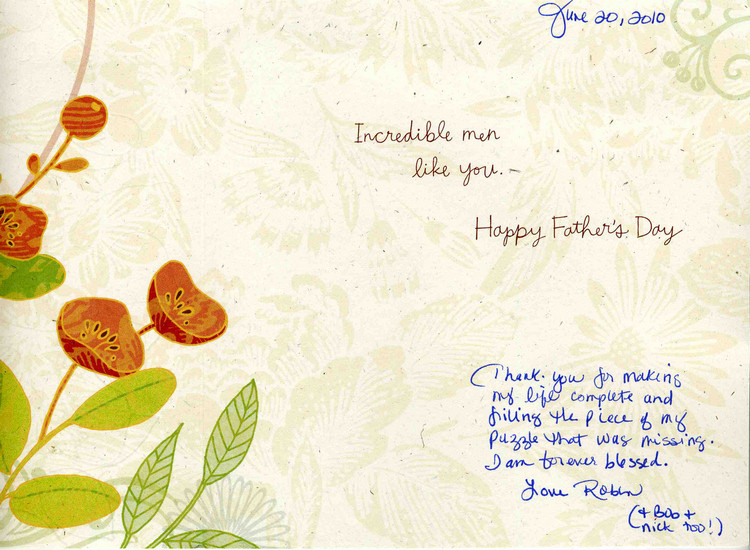 June 20, 2010
Incredible men
like you.
Happy Father's Day
Thank you for making
my life complete and
filling the piece of my
puzzle that was missing.
I am forever blessed.
Love Robin
(+ Bob +
nick too!)